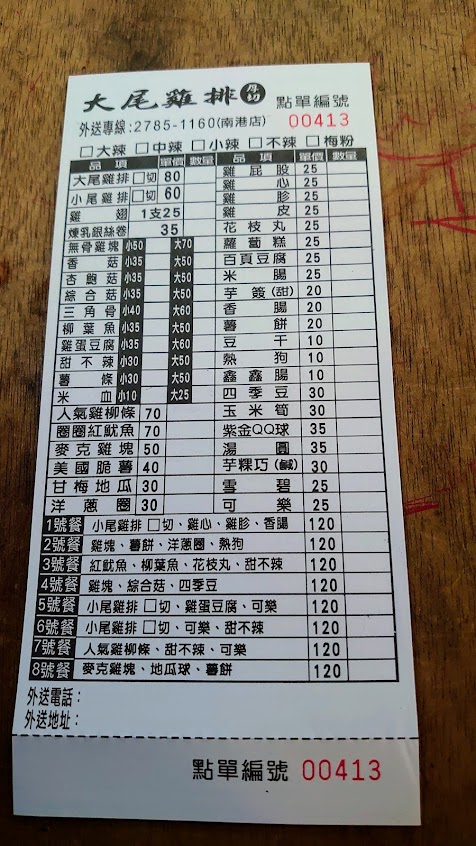 大尾雞排 厚切 點單編號
外送專線:2785-1160(南港店) 00413
□大辣 □中辣 □小辣 □不辣 □梅粉
品項 單價 數量 品項 單價 數量
大尾雞排□切 80 雞屁股 25
小尾雞排□切 60 雞心 25
雞翅 1支25 雞胗 25
煉乳銀絲卷 35 雞皮 25
無骨雞塊 小50 大70 花枝丸 25
香菇 小35 大50 蘿蔔糕 25
杏鮑菇 小35 大50 百頁豆腐 25
綜合菇 小35 大50 米腸 25
三角骨 小40 大60 芋簽(甜) 20
柳葉魚 小35 大50 香腸 20
雞蛋豆腐 小35 大60 薯餅 20
甜不辣 小30 大50 豆干 10
薯條 小30 大50 熱狗 10
米血 小10 大25 鑫鑫腸 10
人氣雞柳條 70 四季豆 30
圈圈紅魷魚 70 玉米筍 30
麥克雞塊 50 紫金QQ球 35
美國脆薯 40 湯圓 35
甘梅地瓜 30 芋粿巧(鹹) 30
洋蔥圈 30 雪碧 25
可樂 25
1號餐 小尾雞排□切、雞心、雞胗、香腸 120
2號餐 雞塊、薯餅、洋蔥圈、熱狗 120
3號餐 紅魷魚、柳葉魚、花枝丸、甜不辣 120
4號餐 雞塊、綜合菇、四季豆 120
5號餐 小尾雞排□切、雞蛋豆腐、可樂 120
6號餐 小尾雞排□切、可樂、甜不辣 120
7號餐 人氣雞柳條、甜不辣、可樂 120
8號餐 麥克雞塊、地瓜球、薯餅 120
外送電話：
外送地址：
點單編號 00413